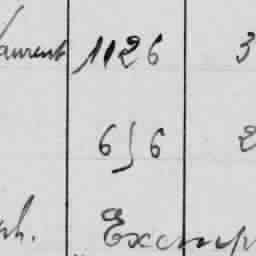 Laurent 1126 3
656 2
ph. Exemp